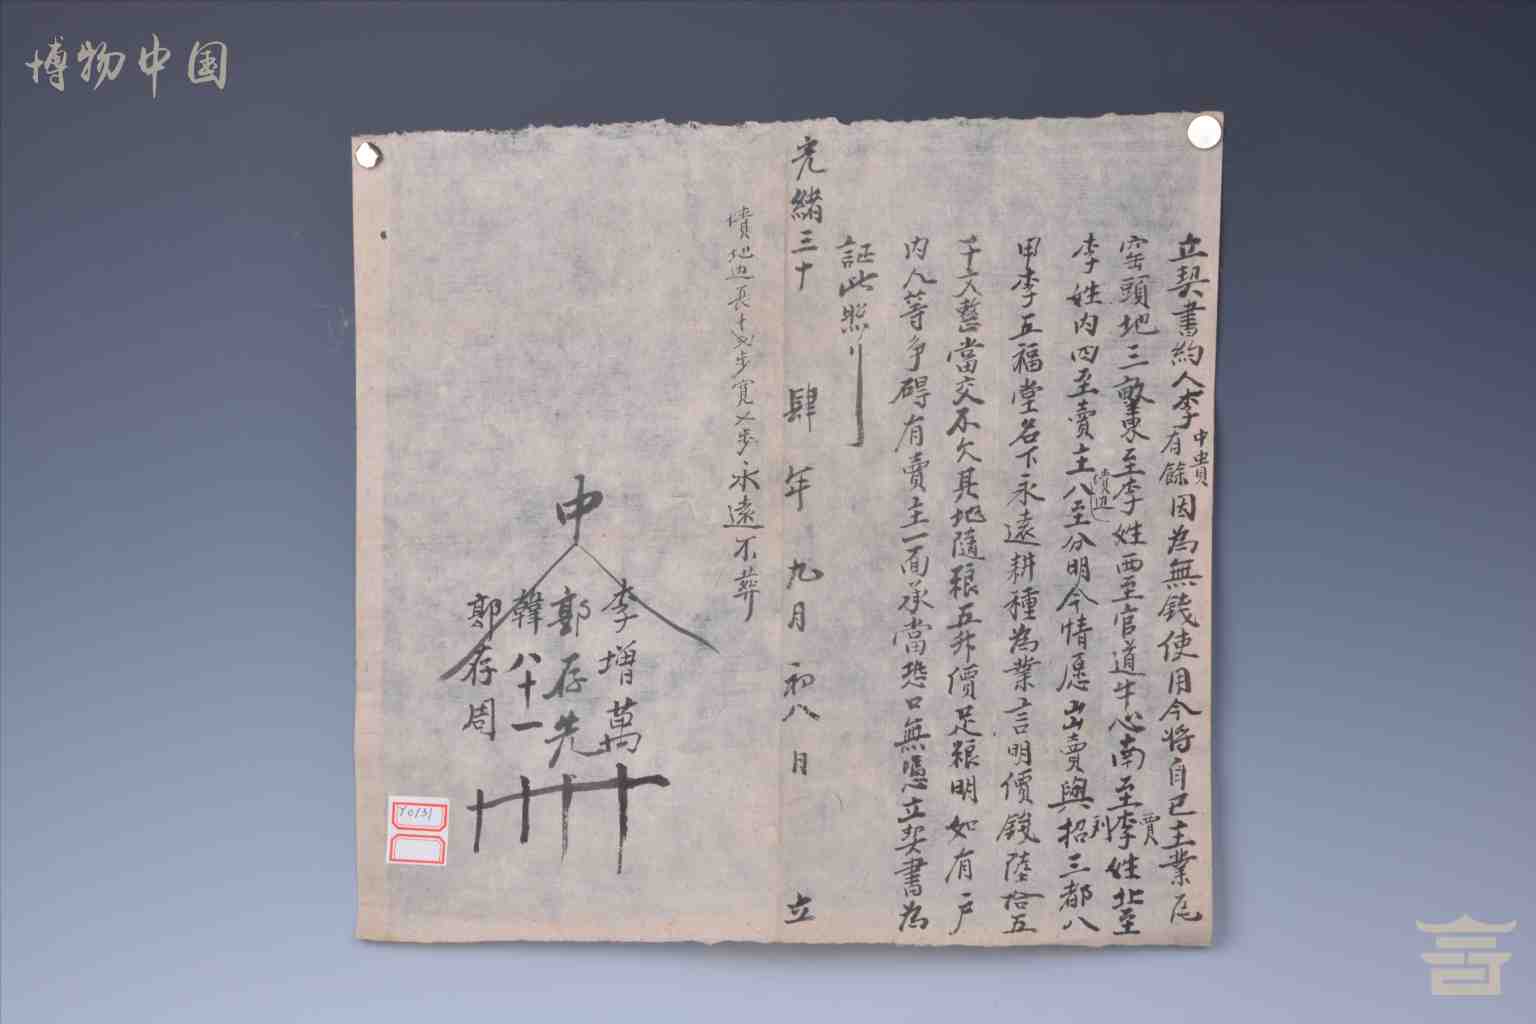 博物中国
立契書約人李中貴有餘因為無錢使用今將自己土業瓦
窑頭地三畝東至李姓西至官道牛心南至李賈姓北至
李姓内四至賣主墳邊八至分明今情愿出賣與招刘三都八
甲李五福堂名下永遠耕種為業言明價錢陸拾五
千文整當交不欠其地隨粮五升價足粮明如有户
内人等争碍有賣主一面承當恐口無憑立契書為
証此照
光緒三十肆年九月初八日立
墳地边長十步寬步永遠不葬
中
李增萬
郭存先
韓八十一
郭存周
Y0131